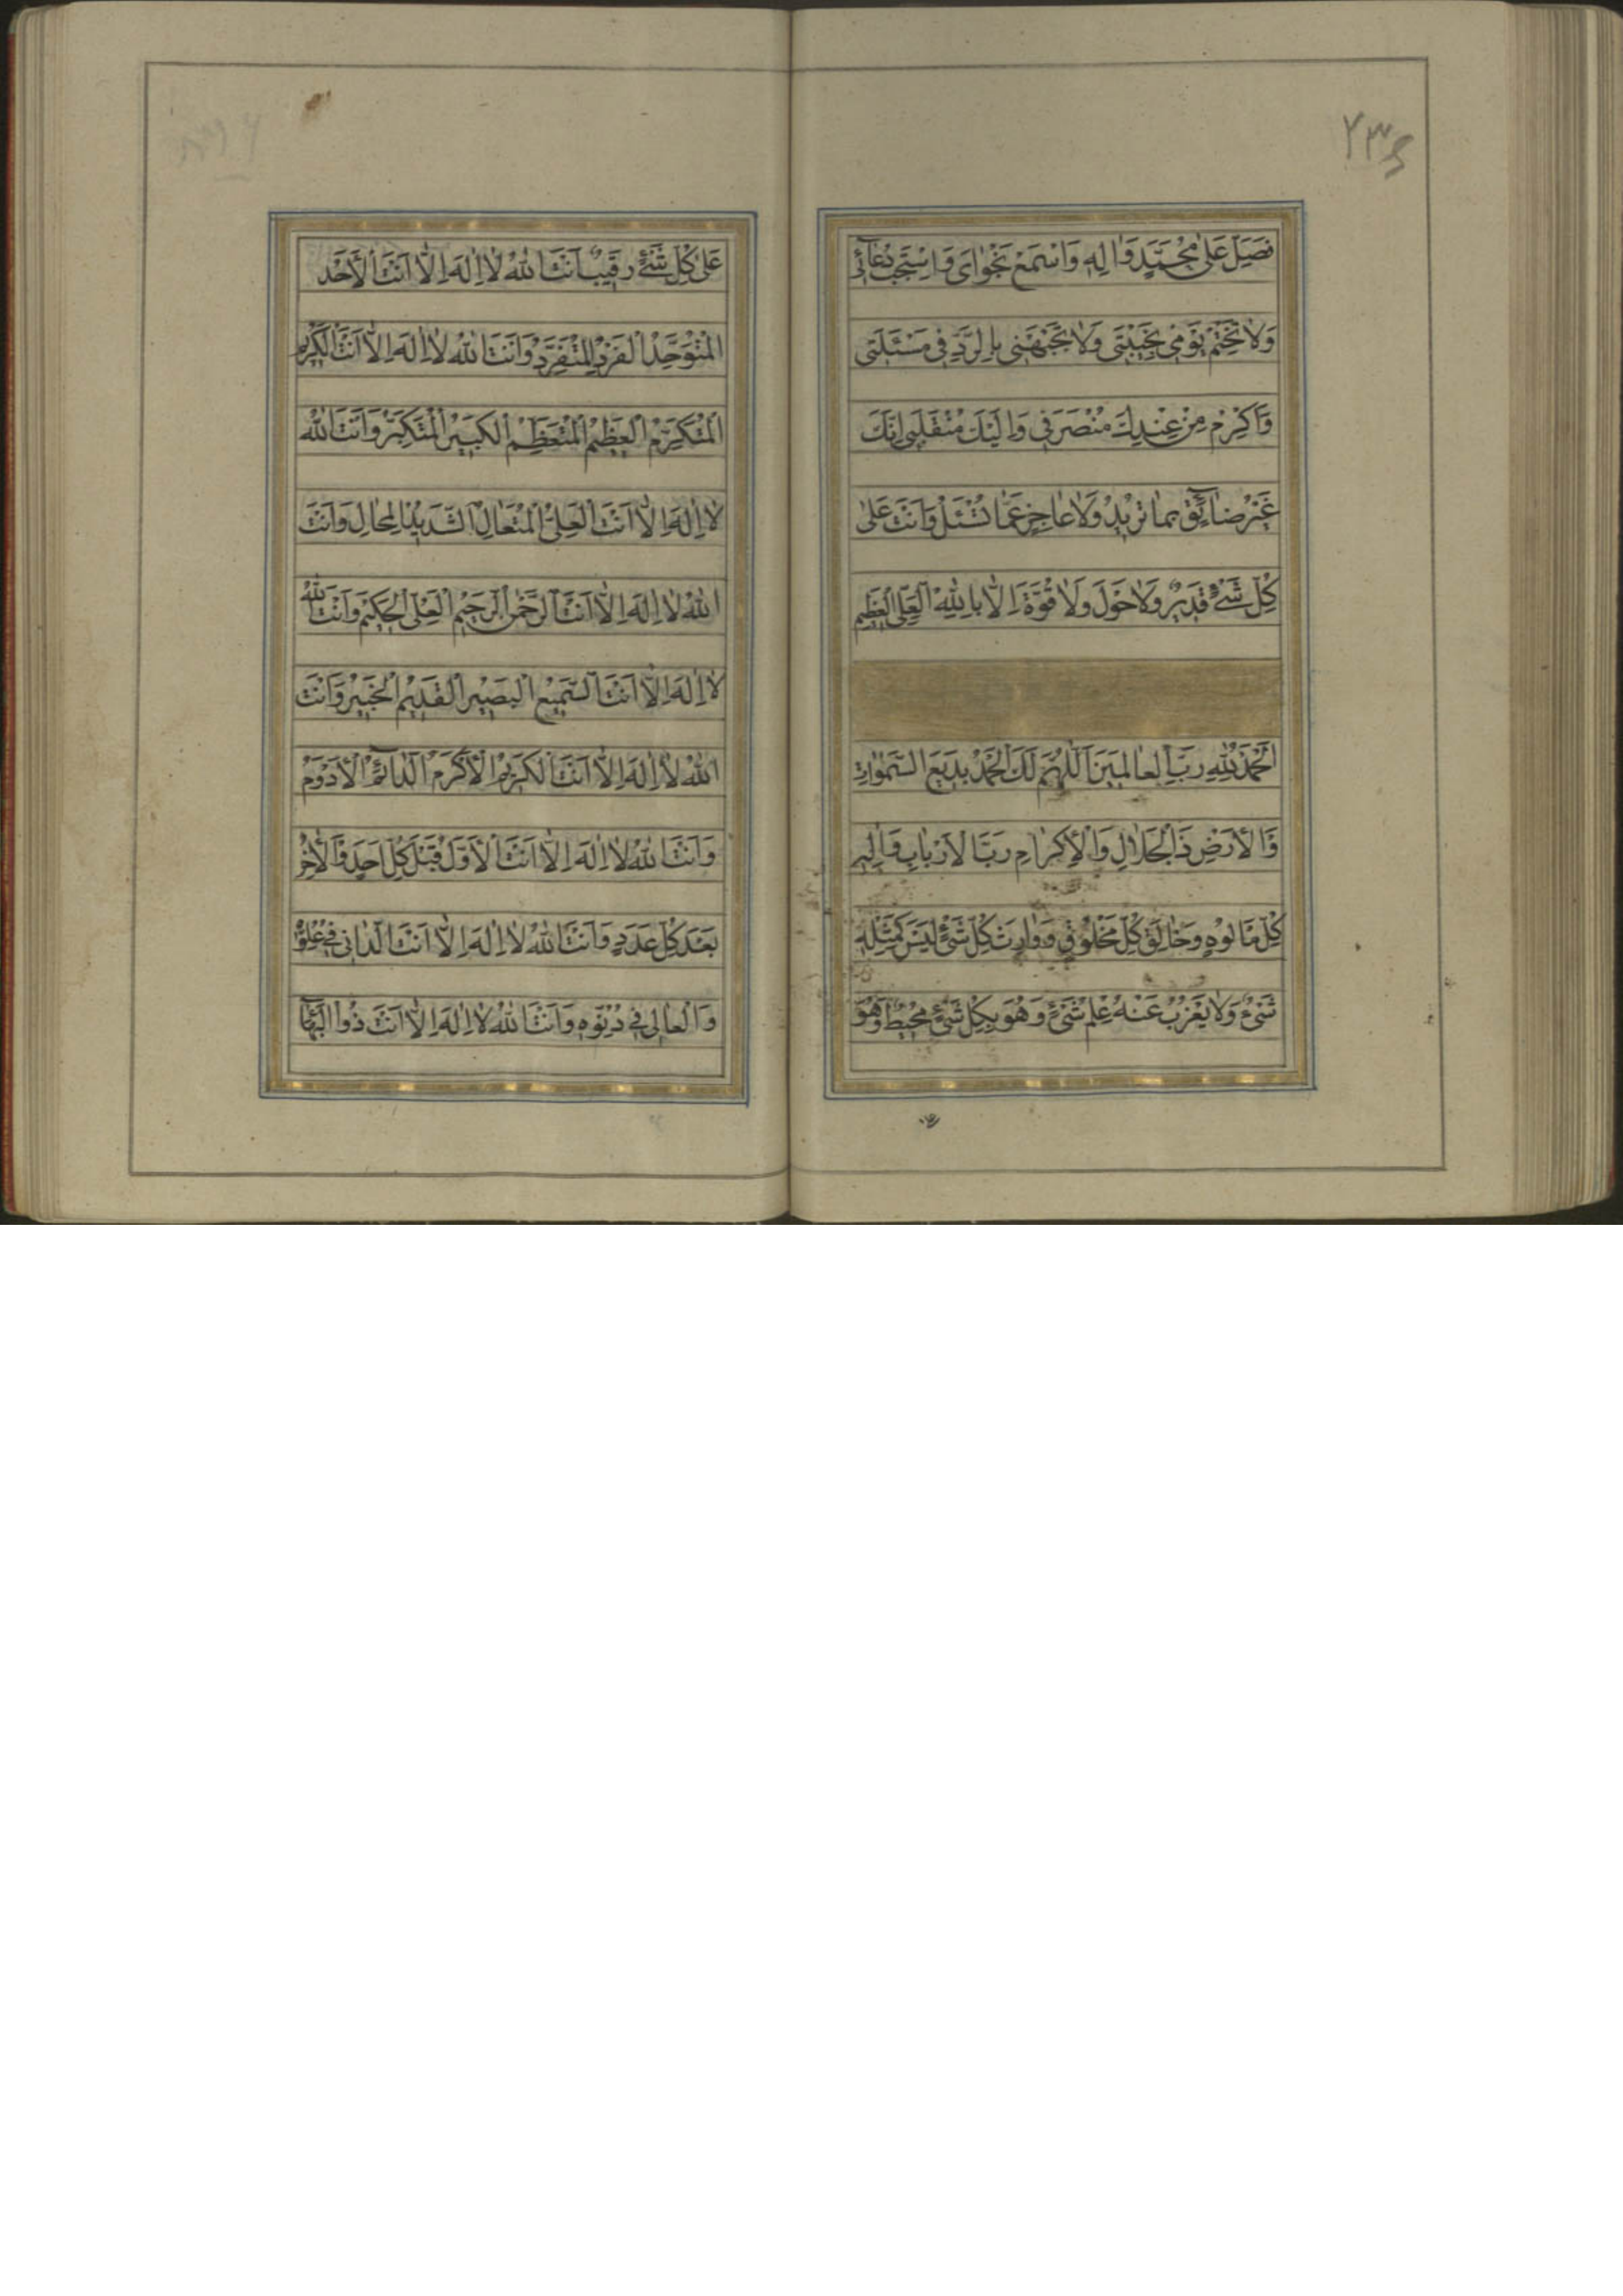 فَصَلِّ عَلىٰ مُحَمَّدٍ وَاٰلِهِ وَاسْمَعْ نَجْوٰايَ وَاسْتَجِبْ دُعٰائِي
وَلاٰ تَخْتِمْ يَوْمِي بِخَيْبَتِي وَلاٰ تَجْبَهْنِي بِالرَّدِّ فِي مَسْئَلَتِي
وَاَكْرِمْ مِنْ عِنْدِكَ مُنْصَرَفِي وَاِلَيْكَ مُنْقَلَبِي اِنَّكَ
غَيْرُ ضٰائِقٍ بِمٰا تُرِيدُ وَلاٰ عٰاجِزٍ عَمّٰا تُسْئَلُ وَاَنْتَ عَلىٰ
كُلِّ شَيْءٍ قَدِيرٌ وَلاٰ حَوْلَ وَلاٰ قُوَّةَ اِلاّٰ بِاللّٰهِ الْعَلِيِّ الْعَظِيمِ
اَلْحَمْدُ لِلّٰهِ رَبِّ الْعٰالَمِينَ اَللّٰهُمَّ لَكَ الْحَمْدُ بَدِيعَ السَّمٰوٰاتِ
وَالْاَرْضِ ذَا الْجَلاٰلِ وَالْاِكْرٰامِ رَبَّ الْاَرْبٰابِ وَاِلٰهَ
كُلِّ مَاْلُوهٍ وَخٰالِقَ كُلِّ مَخْلُوقٍ وَوٰارِثَ كُلِّ شَيْءٍ لَيْسَ كَمِثْلِهِ
شَيْءٌ وَلاٰ يَعْزُبُ عَنْهُ عِلْمُ شَيْءٍ وَهُوَ بِكُلِّ شَيْءٍ مُحِيطٌ وَهُوَ
عَلىٰ كُلِّ شَيْءٍ رَقِيبٌ اَنْتَ اللّٰهُ لاٰ اِلٰهَ اِلاّٰ اَنْتَ الْاَحَدُ
الْمُتَوَحِّدُ الْفَرْدُ الْمُتَفَرِّدُ وَاَنْتَ اللّٰهُ لاٰ اِلٰهَ اِلاّٰ اَنْتَ الْكَرِيمُ
الْمُتَكَرِّمُ الْعَظِيمُ الْمُتَعَظِّمُ الْكَبِيرُ الْمُتَكَبِّرُ وَاَنْتَ اللّٰهُ
لاٰ اِلٰهَ اِلاّٰ اَنْتَ الْعَلِيُّ الْمُتَعٰالِ الشَّدِيدُ الْمِحٰالِ وَاَنْتَ
اللّٰهُ لاٰ اِلٰهَ اِلاّٰ اَنْتَ الرَّحْمٰنُ الرَّحِيمُ الْعَلِيُّ الْحَكِيمُ وَاَنْتَ اللّٰهُ
لاٰ اِلٰهَ اِلاّٰ اَنْتَ السَّمِيعُ الْبَصِيرُ الْقَدِيمُ الْخَبِيرُ وَاَنْتَ
اللّٰهُ لاٰ اِلٰهَ اِلاّٰ اَنْتَ الْكَرِيمُ الْاَكْرَمُ الدّٰائِمُ الْاَدْوَمُ
وَاَنْتَ اللّٰهُ لاٰ اِلٰهَ اِلاّٰ اَنْتَ الْاَوَّلُ قَبْلَ كُلِّ اَحَدٍ وَالْاٰخِرُ
بَعْدَ كُلِّ عَدَدٍ وَاَنْتَ اللّٰهُ لاٰ اِلٰهَ اِلاّٰ اَنْتَ الدّٰانِي فِي عُلُوِّهِ
وَالْعٰالِي فِي دُنُوِّهِ وَاَنْتَ اللّٰهُ لاٰ اِلٰهَ اِلاّٰ اَنْتَ ذُوا الْبَهٰاءِ